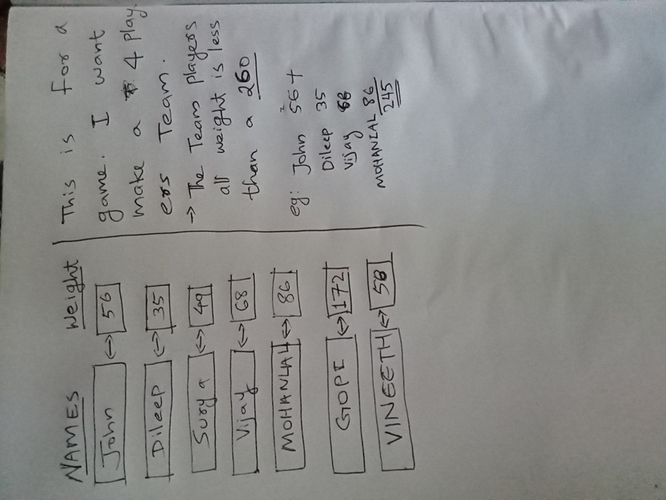 NAMES Weight
John ↔ 56
Dileep ↔ 35
Surya ↔ 49
Vijay ↔ 68
MOHANLAL ↔ 86
GOPI ↔ 172
VINEETH ↔ 58
This is for a
game. I want
make a 4 play
ers Team.
→ The Team players
all weight is less
than a 260
eg: John 56+
Dileep 35
Vijay 68
MOHANLAL 86
245